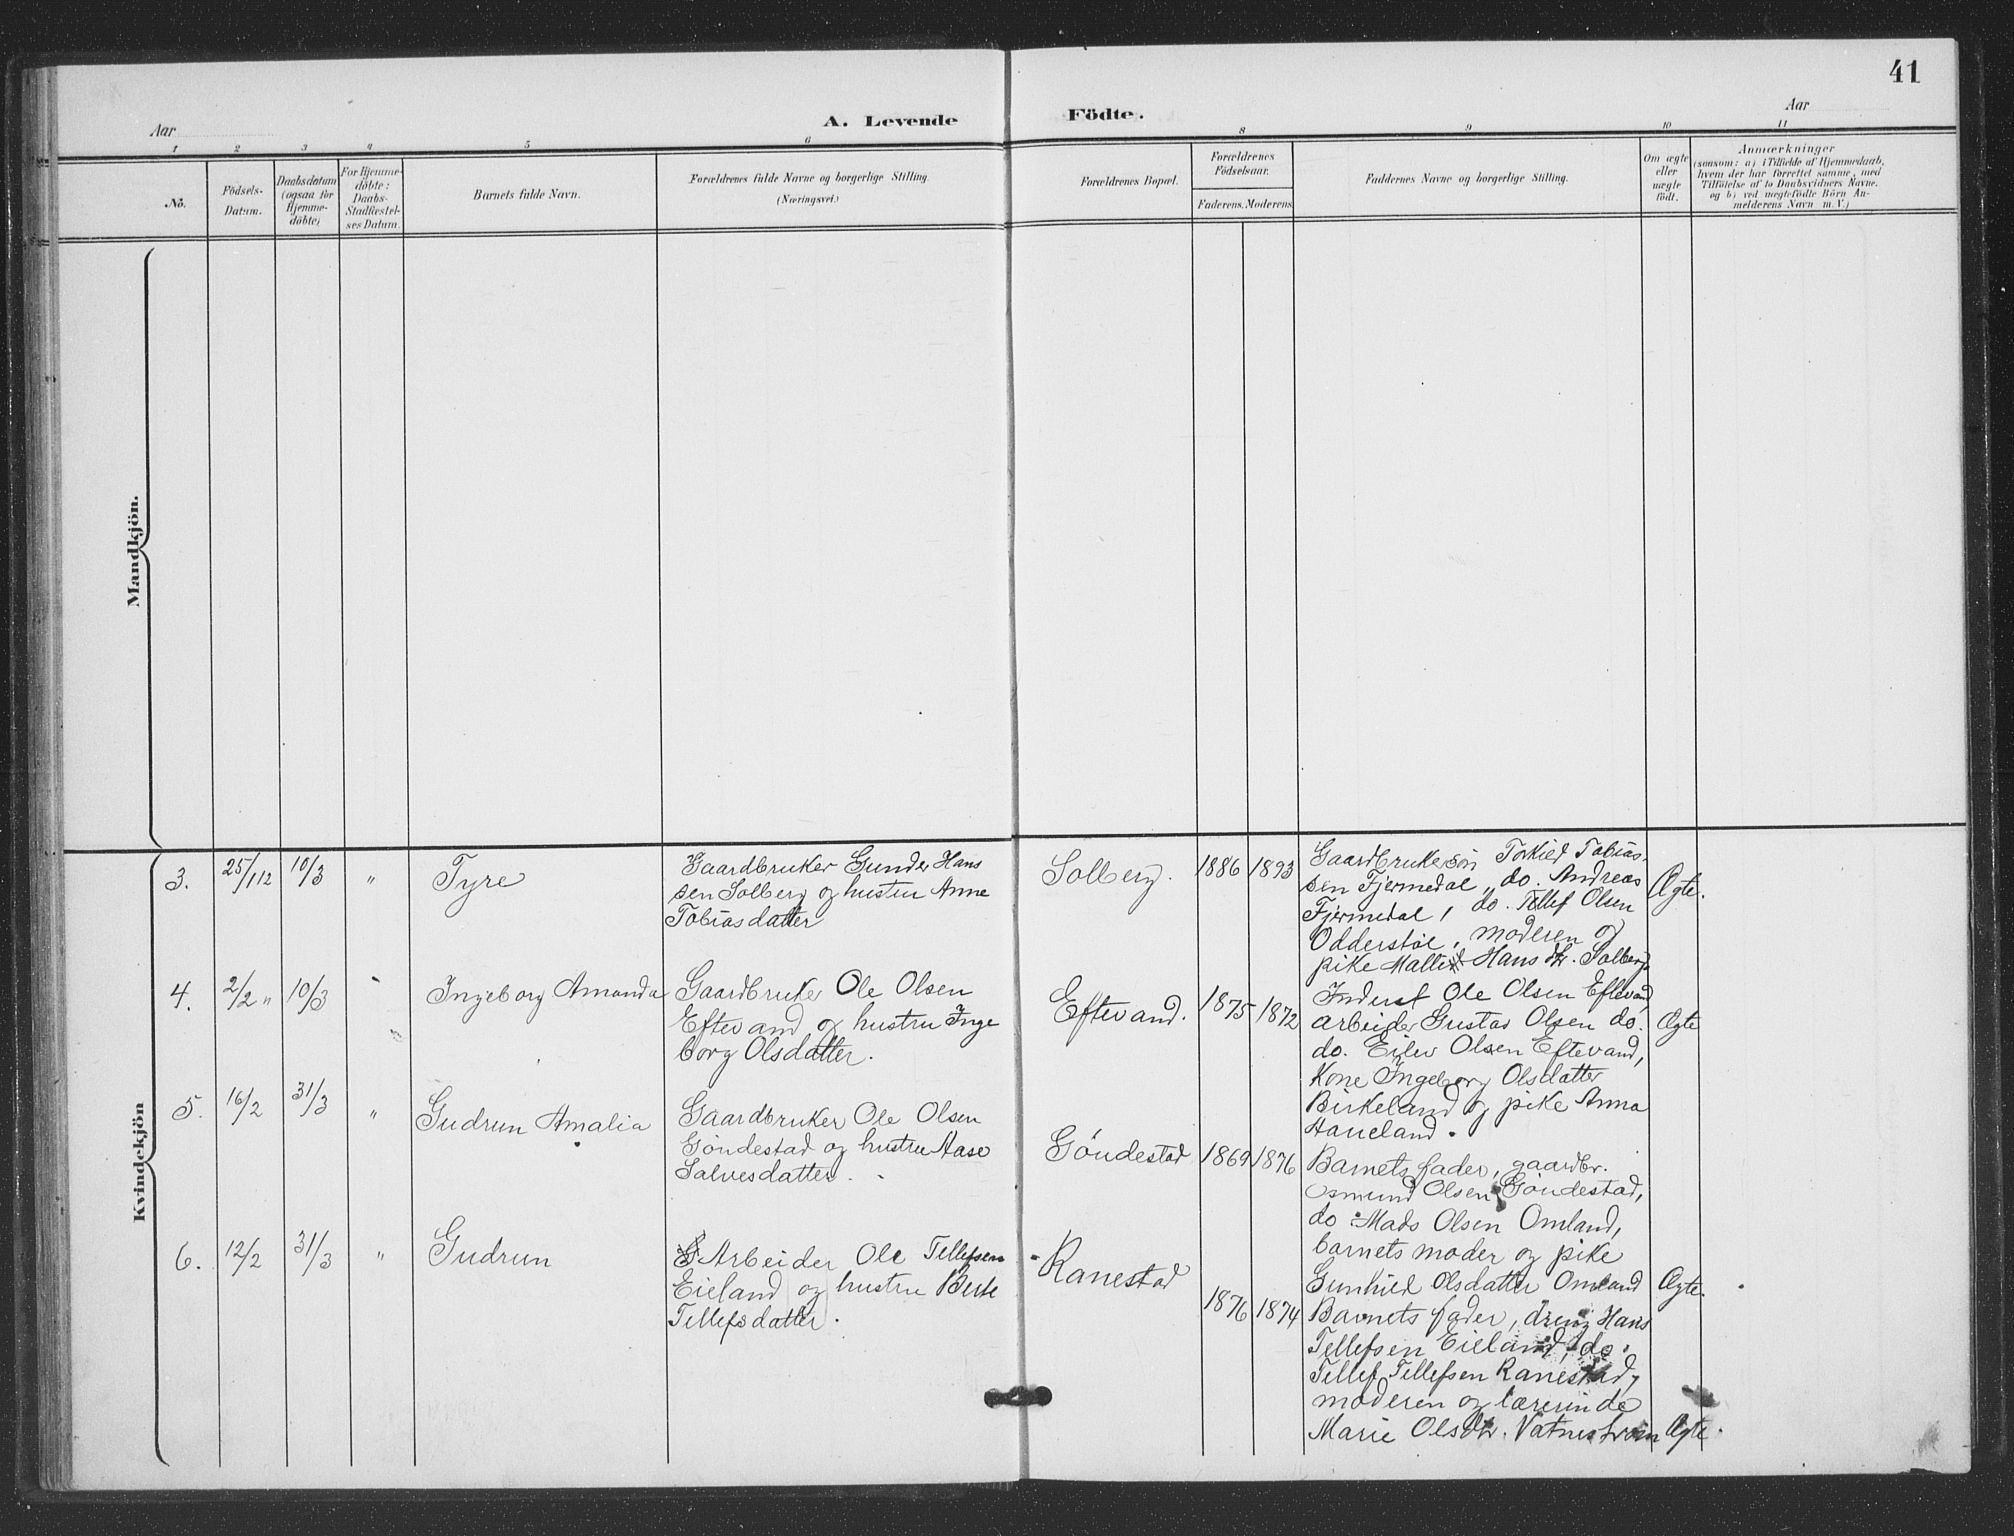 41
Aar
A. Levende
Födte.
Aar
1 2 3 4 5 6 8 9 10 11
No.
Födsels-
Datum.
Daabsdatum
(ogsaa for
Hjemme-
döbte)
For Hjemme-
döbte:
Daabs-
Stadfestel-
ses Datum.
Barnets fulde Navn.
Forældrenes fulde Navne og borgerlige Stilling.
(Næringsvei.)
Forældrenes Bopæl.
Forældrenes
Födselsaar.
Faderens. Moderens.
Faddernes Navne og borgerlige Stilling.
Om ægte
eller
uægte
födt.
Anmærkninger
(saasom: a) i Tilfælde af Hjemmedaab,
hvem der har forrettet samme, med
Tilföielse af to Daabsvidners Navne,
og b) ved uægtefödte Börn An-
melderens Navn m. V.)
Mandkjön.
Kvindekjön
3. 25/112 10/3 " Tyre
Gaardbruker Gunder Hans
sen Solberg og hustru Anne
Tobiasdatter
Solberg. 1886 1893
Gaardbrukersön Torkild Tobias-
sen Fjermedal, do. Andreas
Fjermedal, do. Tellef Olsen
Odderstöl, moderen og
pike Hansdtr. Solberg.
Ægte.
4. 2/2 " 10/3 Ingeborg Amanda
Gaardbruker Ole Olsen
Eftevand og hustru Inge
borg Olsdatter.
Eftevand. 1875 1872
Inderst Ole Olsen Eftevand,
arbeider Gustav Olsen do.
do. Eilev Olsen Eftevand,
Kone Ingeborg Olsdatter
Birkeland og pike Anna
Haueland.
Ægte
5. 16/2 31/3 " Gudrun Amalia
Gaardbruker Ole Olsen
Göndestad og hustru Aase
Salvesdatter.
Göndestad 1869 1876
Barnets fader, gaardbr.
Osmund Olsen Göndestad,
do Mads Olsen Omland,
barnets moder og pike
Gunhild Olsdatter Omland
Ægte.
6. 12/2 31/3 " Gudrun
Arbeider Ole Tellefsen
Eieland og hustru Berte
Tellefsdatter.
Ranestad 1876 1874
Barnets fader, dreng Hans
Tellefsen Eieland, do.
Tellef Tellefsen Ranestad,
moderen og lærerinde
Marie Olsdtr. Vatneström
Ægte.